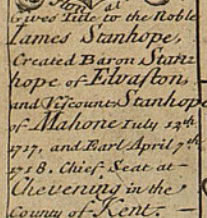 ston at
Gives Title to the Noble
Iames Stanhope,
Created Baron Stan=
hope of Elvaston,
and Viscount Stanhope
of Mahone Iuly 12th
1717, and Earl April 7th
1718. Chief Seat at
Chevening in the
County of Kent.